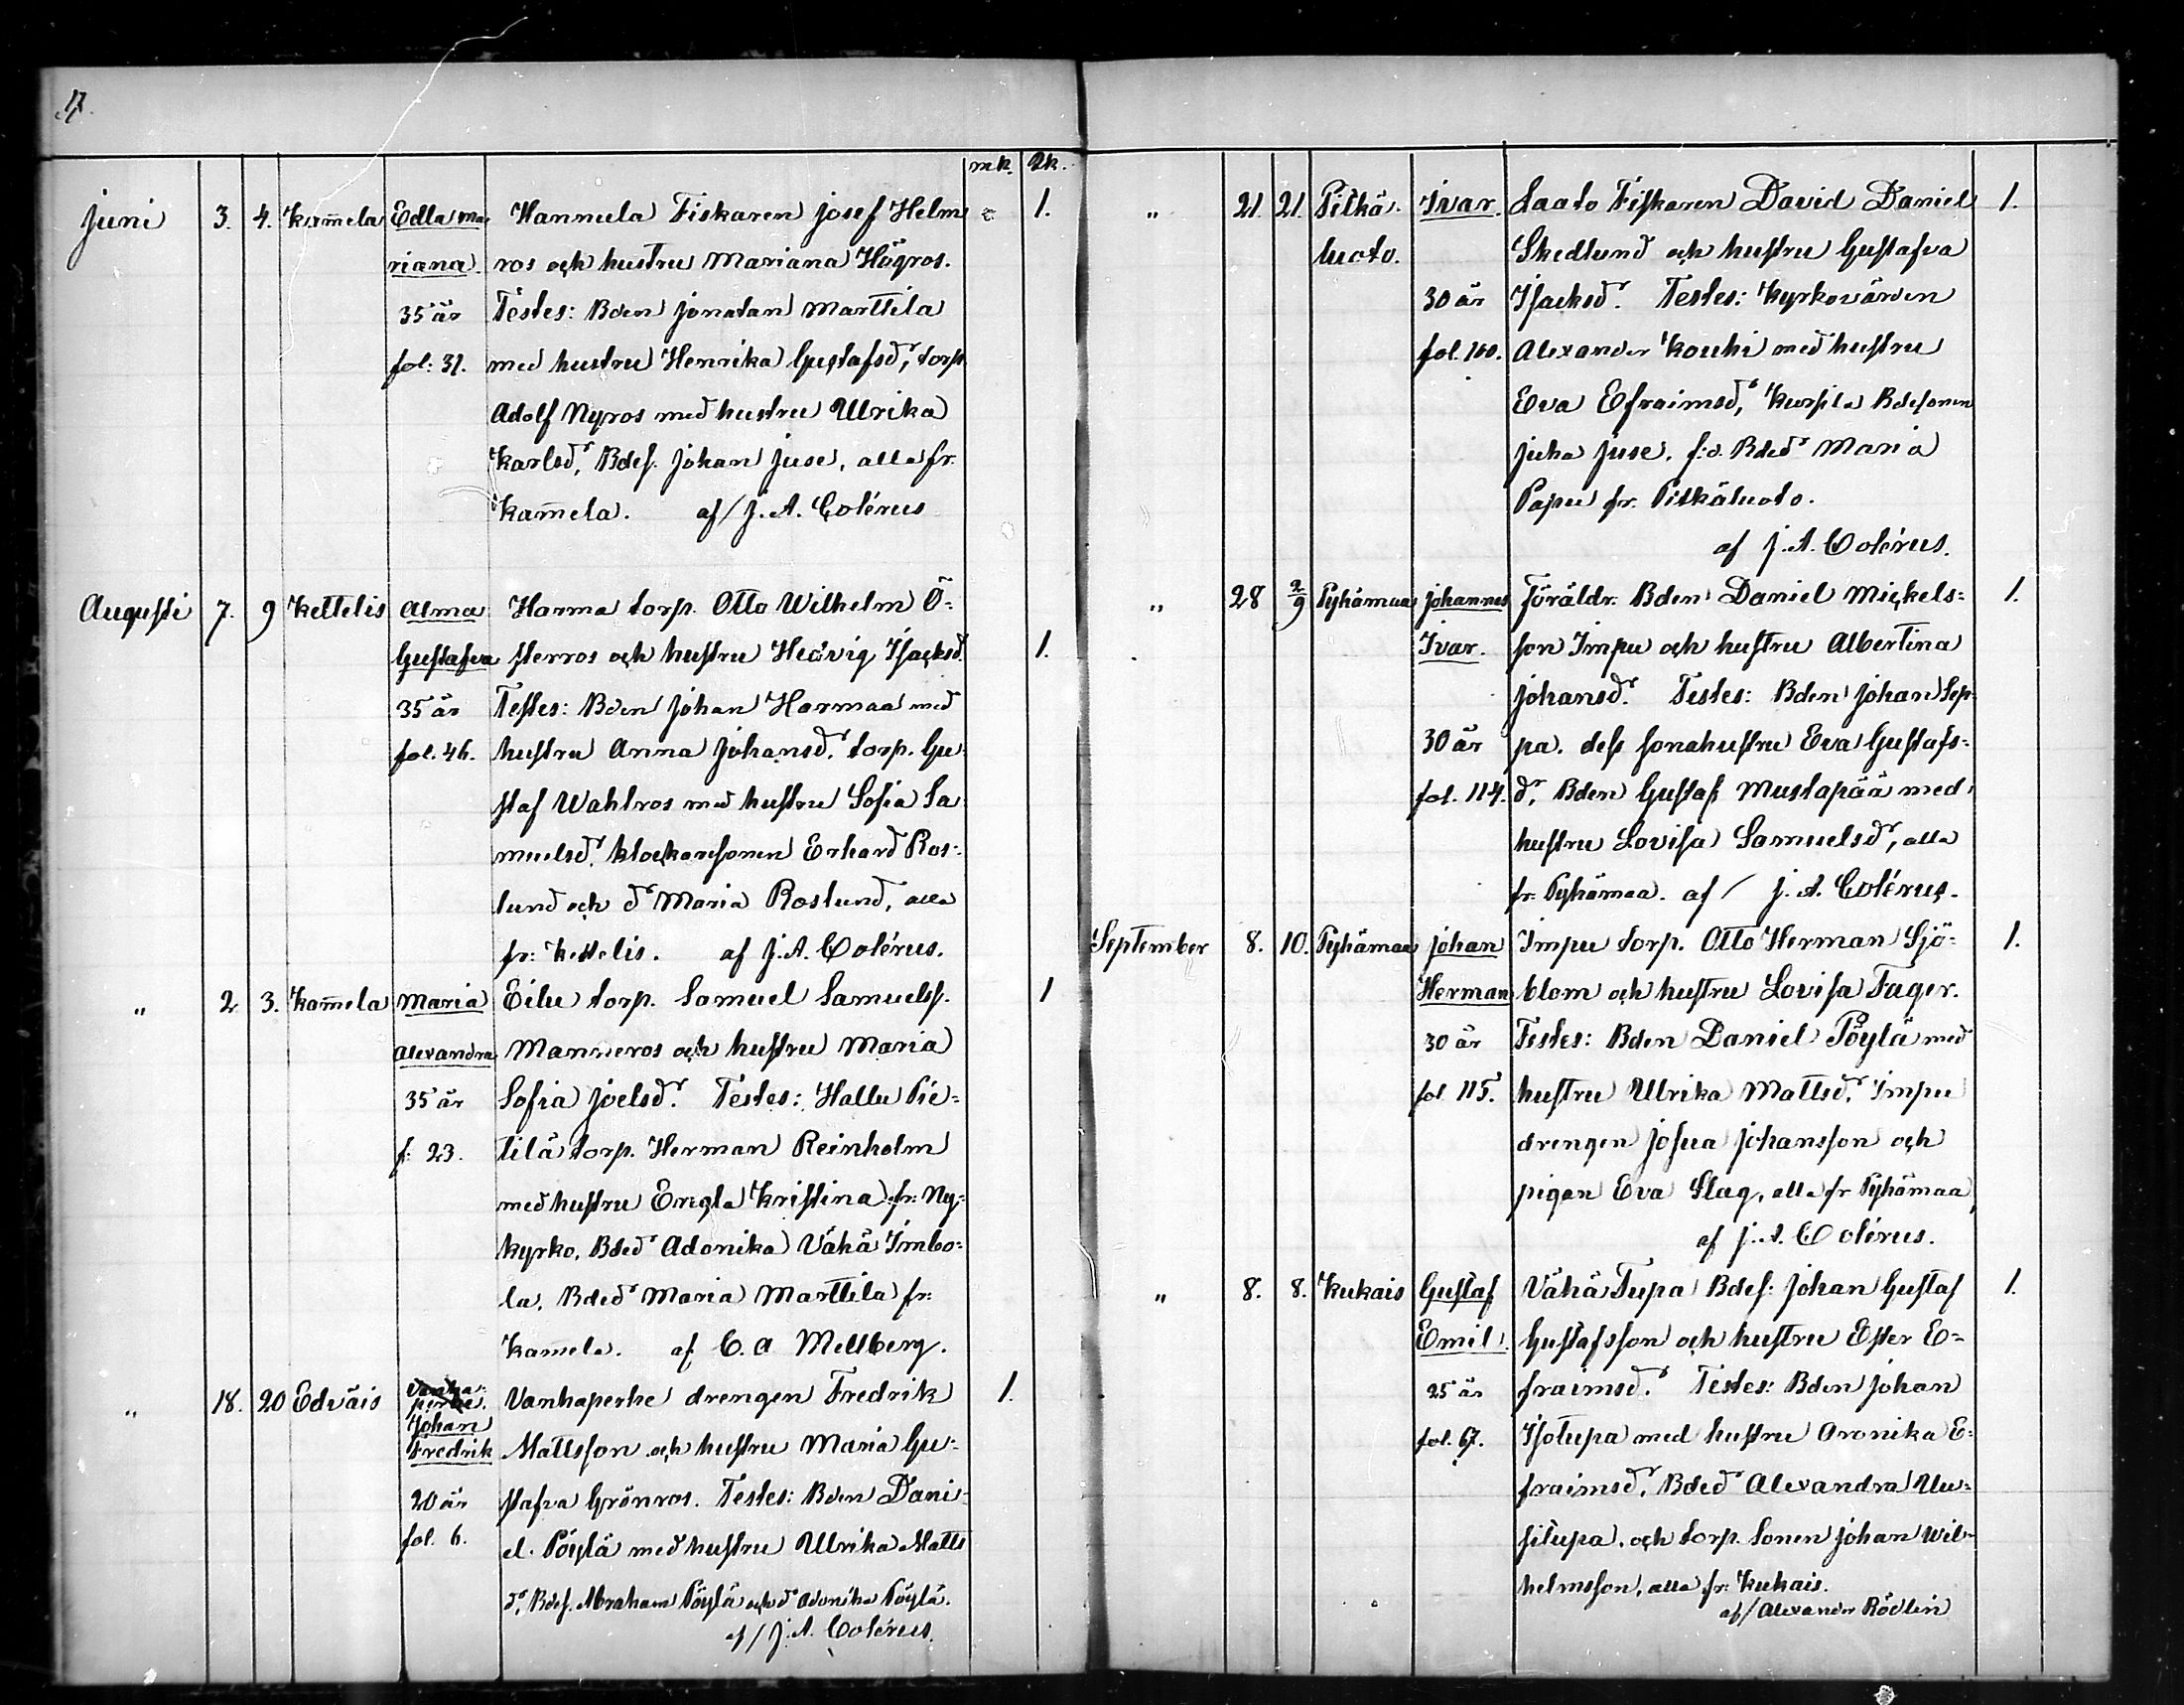 17.
mk. qk.
Juni 3. 4. Kammela Edla Ma Hannula Fiskaren Josef Helm 1.
riana. ros och hustru Mariana Högros.
35 år Testes: Bden Jonatan Marttila
fol: 31. med hustru Henrika Gustafsdr, torp.
Adolf Nyros med hustru Ulrika
Karlsdr, Bdes. Johan Juse, alla fr.
Kamela. af/ J. A. Colérus
Augusti 7. 9 Kettelis Alma Harma torp. Otto Wilhelm Ö-
Gustafva sterros och hustru Hedvig Isacksd. 1.
35 år Testes: Bden Johan Harmaa med
fol. 46. hustru Anna Johansdr. torp. Gu-
staf Wahlros med hustru Sofia Sa
muelsdr. klockaresonen Erhard Ros-
lund och dr Maria Roslund, alla
fr: Kettelis. af J. A. Colérus.
" 2 3. Kammela Maria Eilu torp. Samuel Samuelss. 1
Alexandra Manneros och hustru Maria
35 år Sofia Joelsdr. Testes: Hallu Pie-
f: 23. tilä torp. Herman Reinholm
med hustru Engla Kristina fr: Ny-
kyrko, Bdedr Adonika Vähä Imbo-
la, Bdedr Maria Marttila fr:
Kamela. af C. A Mellberg.
" 18. 20 Edväis Vanha-
perhe. Vanhaperhe drengen Fredrik 1.
Johan
Fredrik Mattsson och hustru Maria Gu-
20 år stafva Grönros. Testes: Bden Dani-
fol. 6. el Pöylä med hustru Ulrika Matts
dr, Bdes. Abraham Pöylä och dr Adonika Pöylä.
af/ J. A. Colérus.
" 21. 21. Pitkä- Ivar. Laato Fiskaren David Daniel 1.
luoto. Skedlund och hustru Gustafva
30 år Isacksdr. Testes: Kyrkovärden
fol. 100. Alexander Kouhi med hustru
Eva Efraimsdr, Kurpila Bdesonen
Juha Juse, f:d. Bdedr Maria
Papu fr. Pitkäluoto.
af J. A. Colérus.
" 28 2/9 Pyhämaa Johannes Föräldr. Bden Daniel Mickels- 1.
Ivar. son Impu och hustru Albertina
Johansdr. Testes: Bden Johan Sep-
30 år pa, dess sonahustru Eva Gustafs-
fol. 114. dr, Bden Gustaf Mustapää med
hustru Lovisa Samuelsdr, alla
fr. Pyhämaa. af/ J. A. Colérus.
September 8. 10. Pyhämaa Johan Impu torp. Otto Herman Sjö- 1.
Herman blom och hustru Lovisa Fager.
30 år Testes: Bden Daniel Pöylä med
fol 115. hustru Ulrika Mattsdr. Impu
drengen Josua Johansson och
pigan Eva Slag, alla fr Pyhämaa
af J. A. Colérus.
" 8. 8. Kukais Gustaf Vähä Tupa Bdes: Johan Gustaf 1.
Emil. Gustafsson och hustru Ester E-
25 år fraimsdr. Testes: Bden Johan
fol. 67. Isotupa med hustru Aronika E-
fraimsdr, Bdedr Alexandra Uu-
situpa, och torp. Sonen Johan Wil-
helmsson, alla fr: Kukais.
af/ Alexander Rödlin